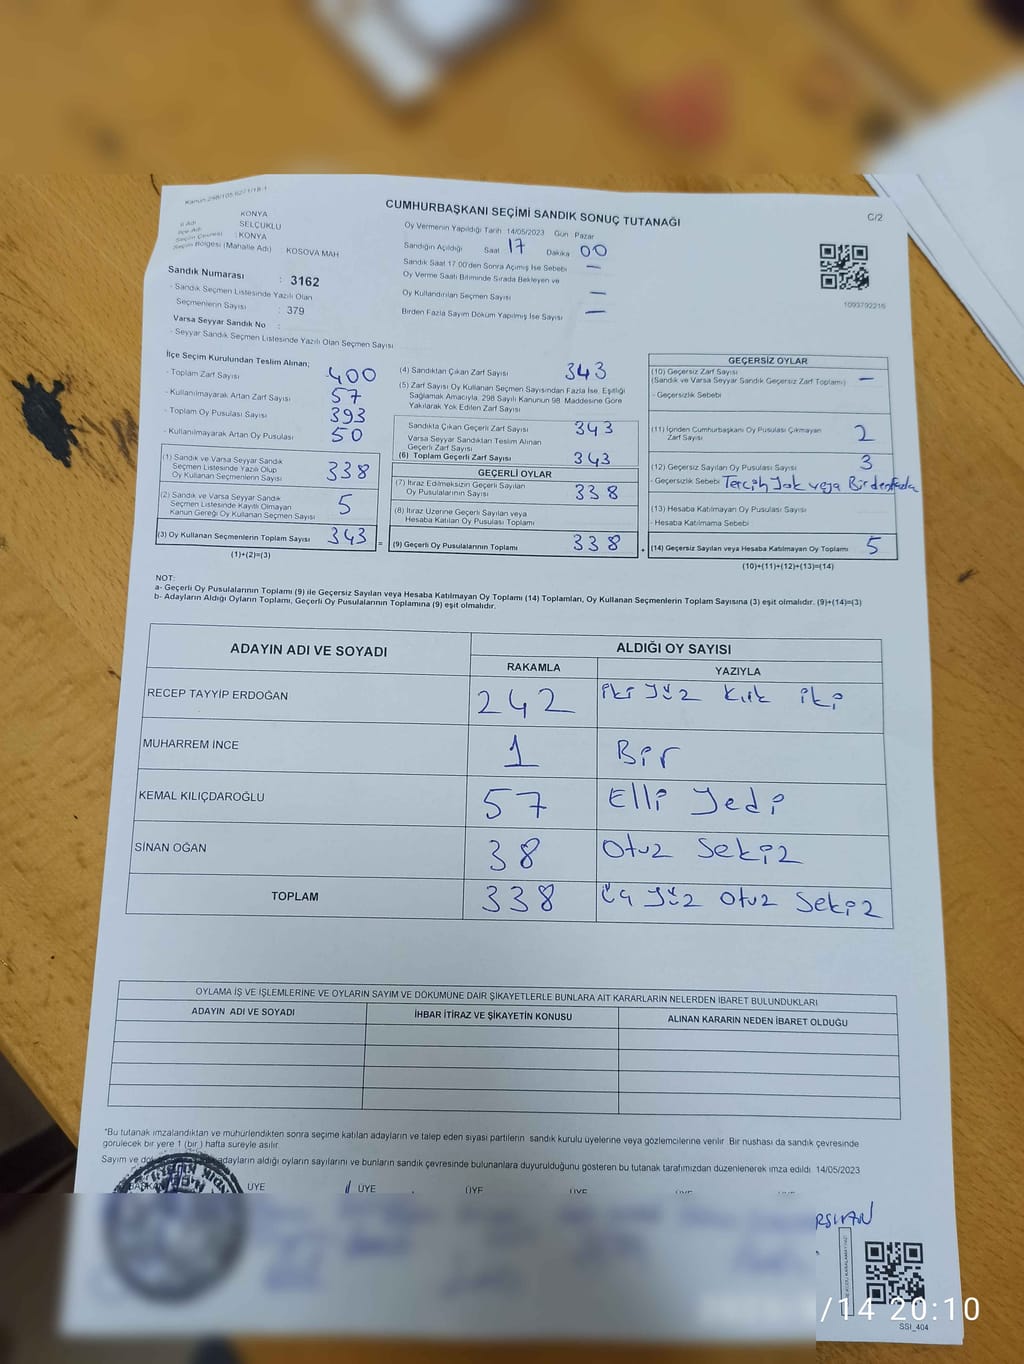 Kanun 298/105 6271/18-1
CUMHURBAŞKANI SEÇİMİ SANDIK SONUÇ TUTANAĞI
C/2
İl Adı KONYA
İlçe Adı SELÇUKLU
Seçim Çevresi : KONYA
Seçim Bölgesi (Mahalle Adı) : KOSOVA MAH
Sandık Numarası : 3162
- Sandık Seçmen Listesinde Yazılı Olan
Seçmenlerin Sayısı : 379
Varsa Seyyar Sandık No :
- Seyyar Sandık Seçmen Listesinde Yazılı Olan Seçmen Sayısı
Oy Vermenin Yapıldığı Tarih 14/05/2023 Gün Pazar
Sandığın Açıldığı Saat 17 Dakika 00
Sandık Saat 17.00'den Sonra Açımış İse Sebebi —
Oy Verme Saati Bitiminde Sırada Bekleyen ve
Oy Kullandırılan Seçmen Sayısı —
Birden Fazla Sayım Döküm Yapılmış İse Sayısı —
1093792216
İlçe Seçim Kurulundan Teslim Alınan;
- Toplam Zarf Sayısı 400
- Kullanılmayarak Artan Zarf Sayısı 57
- Toplam Oy Pusulası Sayısı 393
- Kullanılmayarak Artan Oy Pusulası 50
(1) Sandık ve Varsa Seyyar Sandık
Seçmen Listesinde Yazılı Olup
Oy Kullanan Seçmenlerin Sayısı 338
(2) Sandık ve Varsa Seyyar Sandık
Seçmen Listesinde Kayıtlı Olmayan
Kanun Gereği Oy Kullanan Seçmen Sayısı 5
(3) Oy Kullanan Seçmenlerin Toplam Sayısı 343 =
(1)+(2)=(3)
(4) Sandıktan Çıkan Zarf Sayısı 343
(5) Zarf Sayısı Oy Kullanan Seçmen Sayısından Fazla İse, Eşitliği
Sağlamak Amacıyla, 298 Sayılı Kanunun 98. Maddesine Göre
Yakılarak Yok Edilen Zarf Sayısı
Sandıkta Çıkan Geçerli Zarf Sayısı 343
Varsa Seyyar Sandıktan Teslim Alınan
Geçerli Zarf Sayısı
(6) Toplam Geçerli Zarf Sayısı 343
GEÇERLİ OYLAR
(7) İtiraz Edilmeksizin Geçerli Sayılan
Oy Pusulalarının Sayısı 338
(8) İtiraz Üzerine Geçerli Sayılan veya
Hesaba Katılan Oy Pusulası Toplamı
(9) Geçerli Oy Pusulalarının Toplamı 338 +
GEÇERSİZ OYLAR
(10) Geçersiz Zarf Sayısı
(Sandık ve Varsa Seyyar Sandık Geçersiz Zarf Toplamı) —
- Geçersizlik Sebebi
(11) İçinden Cumhurbaşkanı Oy Pusulası Çıkmayan
Zarf Sayısı 2
(12) Geçersiz Sayılan Oy Pusulası Sayısı 3
- Geçersizlik Sebebi Tercih Yok veya Birden Fazla
(13) Hesaba Katılmayan Oy Pusulası Sayısı
- Hesaba Katılmama Sebebi
(14) Geçersiz Sayılan veya Hesaba Katılmayan Oy Toplamı 5
(10)+(11)+(12)+(13)=(14)
NOT:
a- Geçerli Oy Pusulalarının Toplamı (9) ile Geçersiz Sayılan veya Hesaba Katılmayan Oy Toplamı (14) Toplamları, Oy Kullanan Seçmenlerin Toplam Sayısına (3) eşit olmalıdır. (9)+(14)=(3)
b- Adayların Aldığı Oyların Toplamı, Geçerli Oy Pusulalarının Toplamına (9) eşit olmalıdır.
ADAYIN ADI VE SOYADI ALDIĞI OY SAYISI
RAKAMLA YAZIYLA
RECEP TAYYİP ERDOĞAN 242 iki Yüz Kırk iki
MUHARREM İNCE 1 Bir
KEMAL KILIÇDAROĞLU 57 Elli Yedi
SİNAN OĞAN 38 Otuz Sekiz
TOPLAM 338 Üç Yüz Otuz Sekiz
OYLAMA İŞ VE İŞLEMLERİNE VE OYLARIN SAYIM VE DÖKÜMÜNE DAİR ŞİKAYETLERLE BUNLARA AİT KARARLARIN NELERDEN İBARET BULUNDUKLARI
ADAYIN ADI VE SOYADI İHBAR İTİRAZ VE ŞİKAYETİN KONUSU ALINAN KARARIN NEDEN İBARET OLDUĞU
*Bu tutanak imzalandıktan ve mühürlendikten sonra seçime katılan adayların ve talep eden siyasi partilerin sandık kurulu üyelerine veya gözlemcilerine verilir. Bir nushası da sandık çevresinde
görülecek bir yere 1 (bir ) hafta süreyle asılır.
Sayım ve adayların aldığı oyların sayılarını ve bunların sandık çevresinde bulunanlara duyurulduğunu gösteren bu tutanak tarafımızdan düzenlenerek imza edildi. 14/05/2023
BAŞKAN ÜYE ÜYE ÜYE
/14 20:10
SSI_404